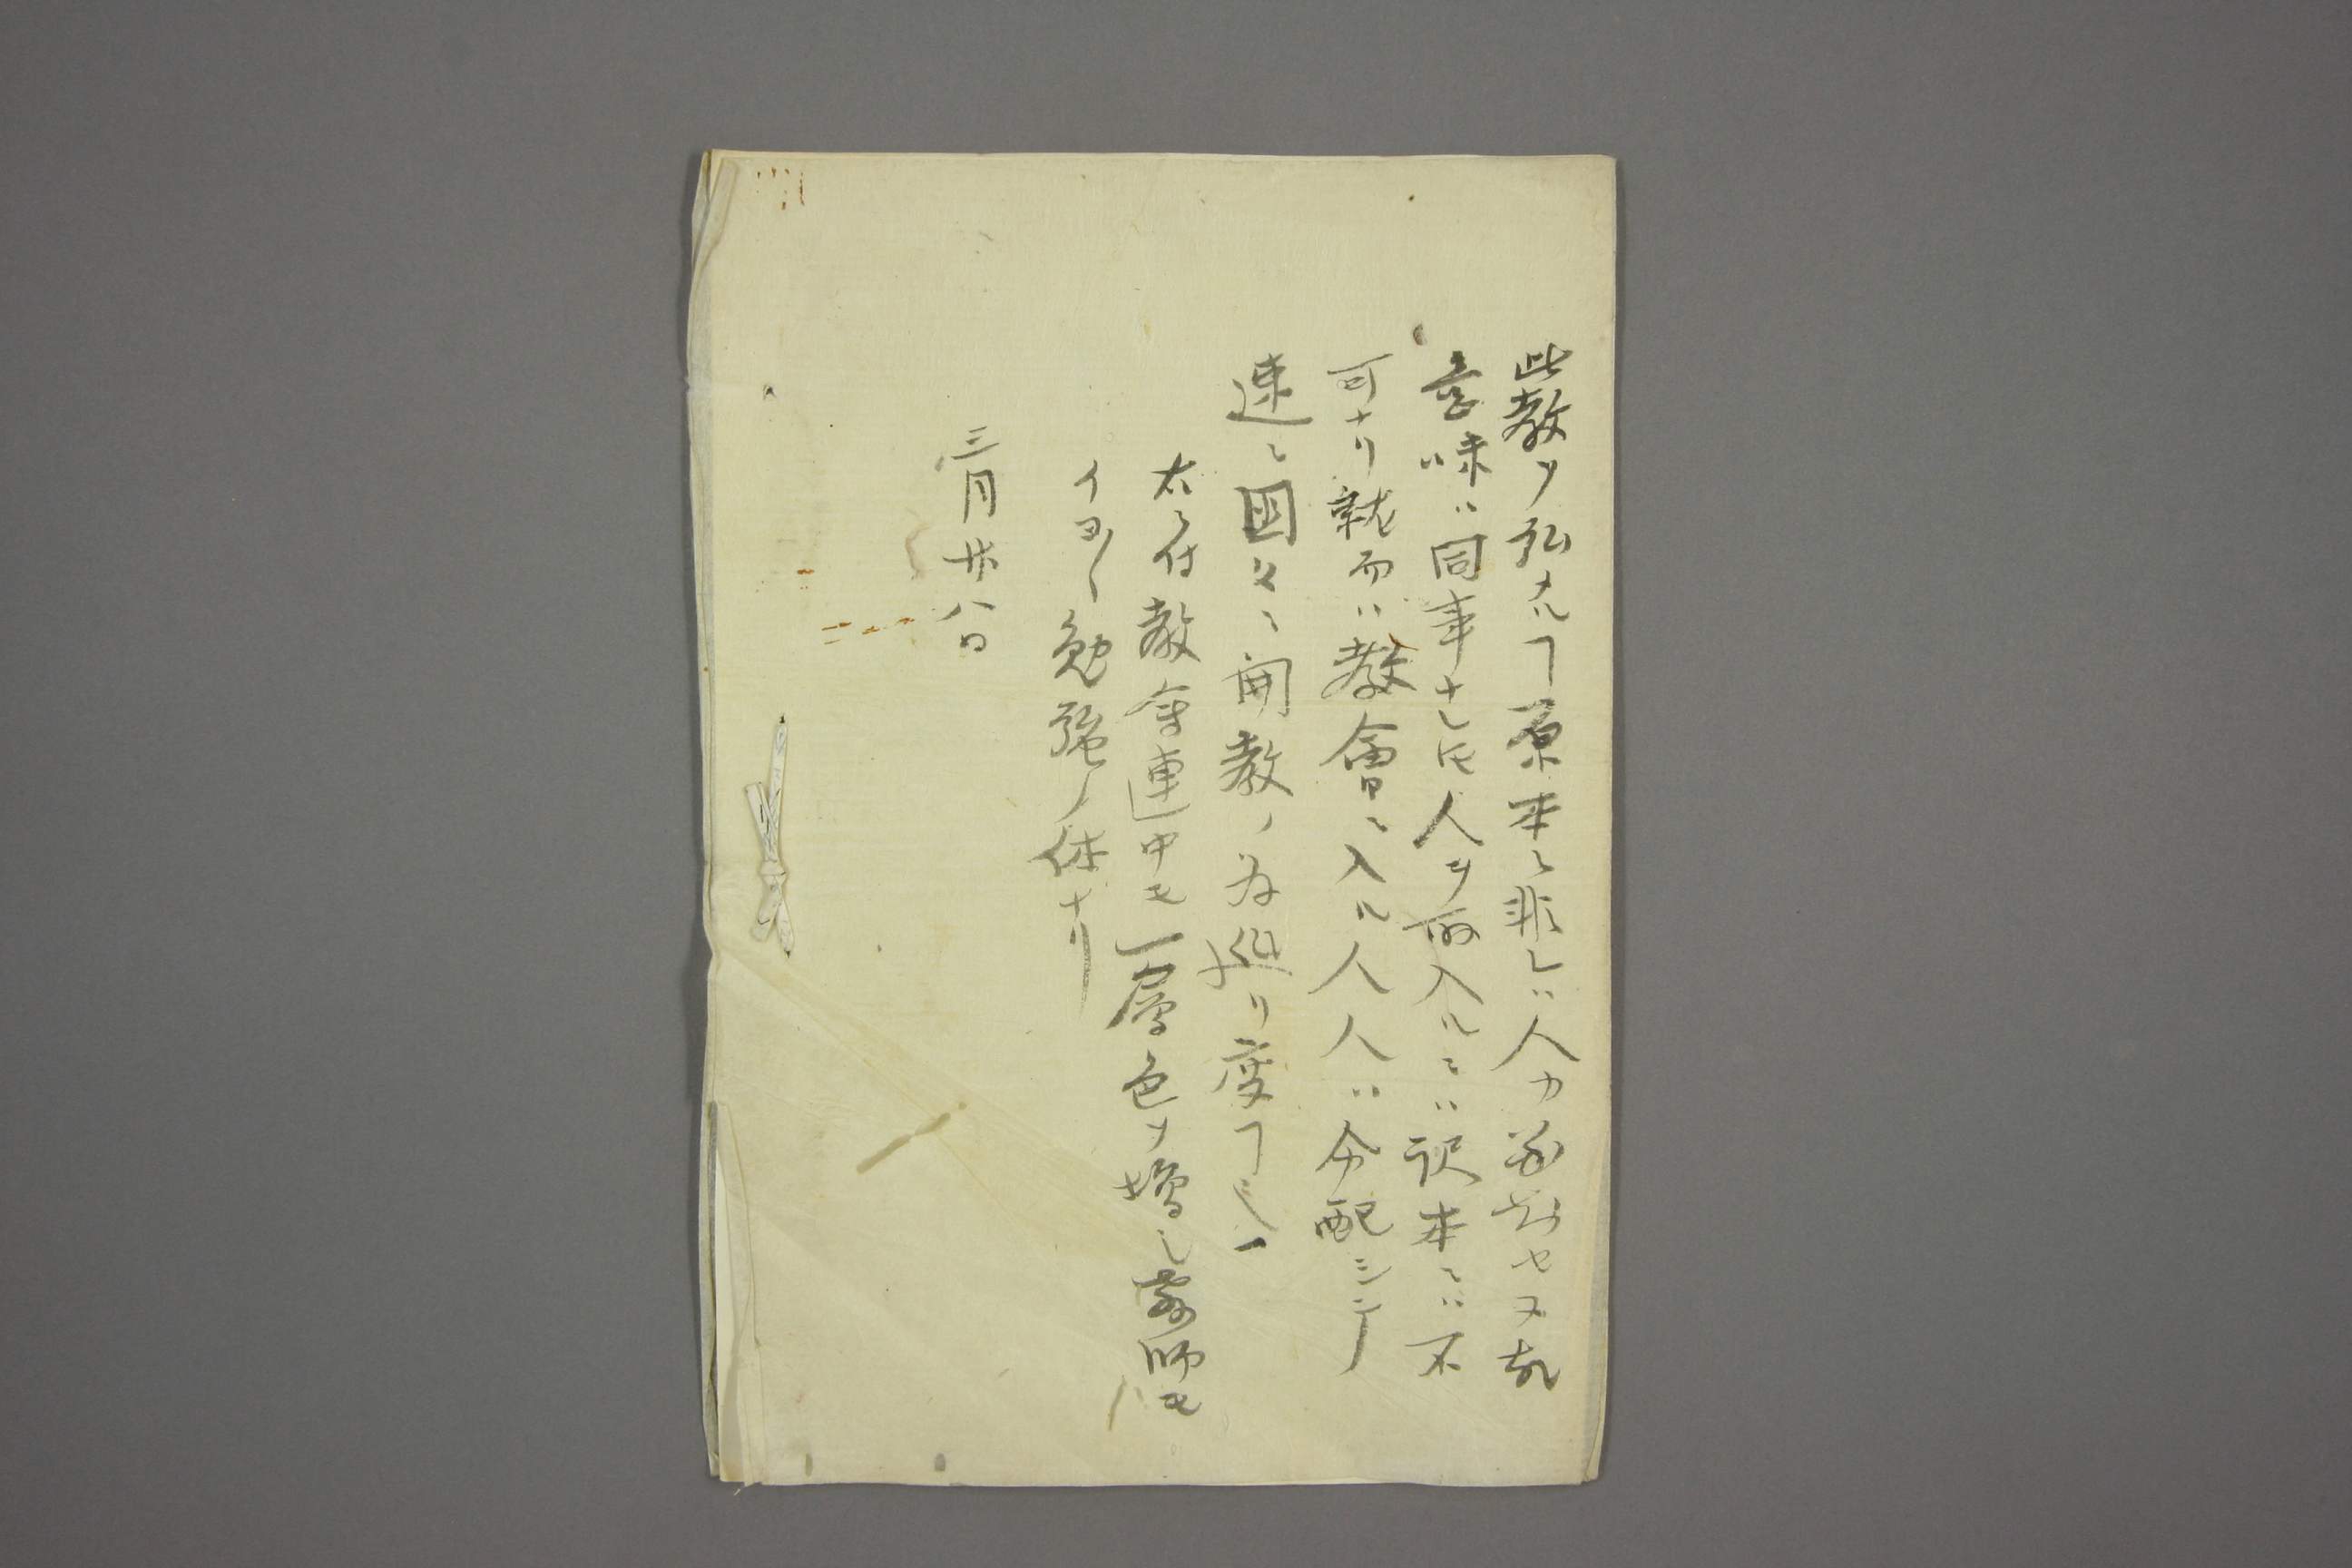 此教ヲ弘ムルヿ原本ニ非レハ人カ必対セヌ故
意味ハ同事ナレ𪜈人ヲ入ルニハ訳本ニハ不
可ナリ就而ハ教會ニ入ル人人ハ分配シテ
速ニ国々ニ開教ノ為巡リ度ヿ
右ニ付教會連中モ一層色ヲ増シ教師モ
イヨ〱勉強ノ体ナリ
三月廿八日